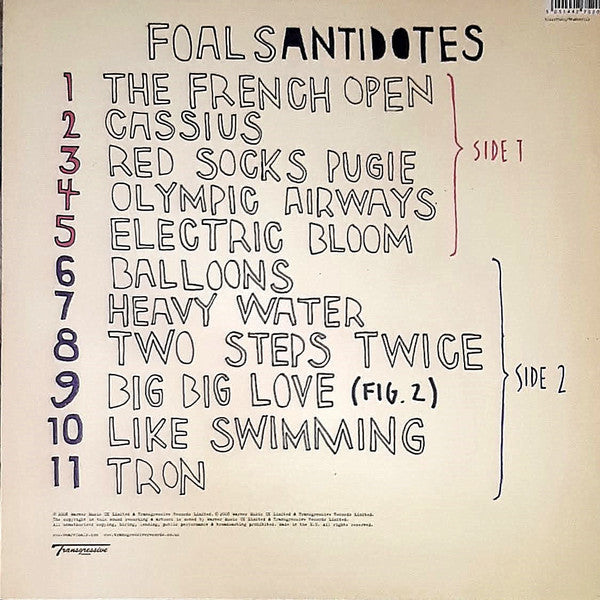 FOALS ANTIDOTES
1 THE FRENCH OPEN
2 CASSIUS
3 RED SOCKS PUGIE
4 OLYMPIC AIRWAYS
5 ELECTRIC BLOOM
SIDE 1
6 BALLOONS
7 HEAVY WATER
8 TWO STEPS TWICE
9 BIG BIG LOVE (FIG. 2)
10 LIKE SWIMMING
11 TRON
SIDE 2
℗ 2008 Warner Music UK Limited & Transgressive Records Limited. © 2008 Warner Music UK Limited & Transgressive Records Limited.
The copyright in this sound recording & artwork is owned by Warner Music UK Limited & Transgressive Records Limited.
All unauthorised copying, hiring, lending, public performance & broadcasting prohibited. Made in the E.U. All rights reserved.
www.transgressiverecords.co.uk
Transgressive